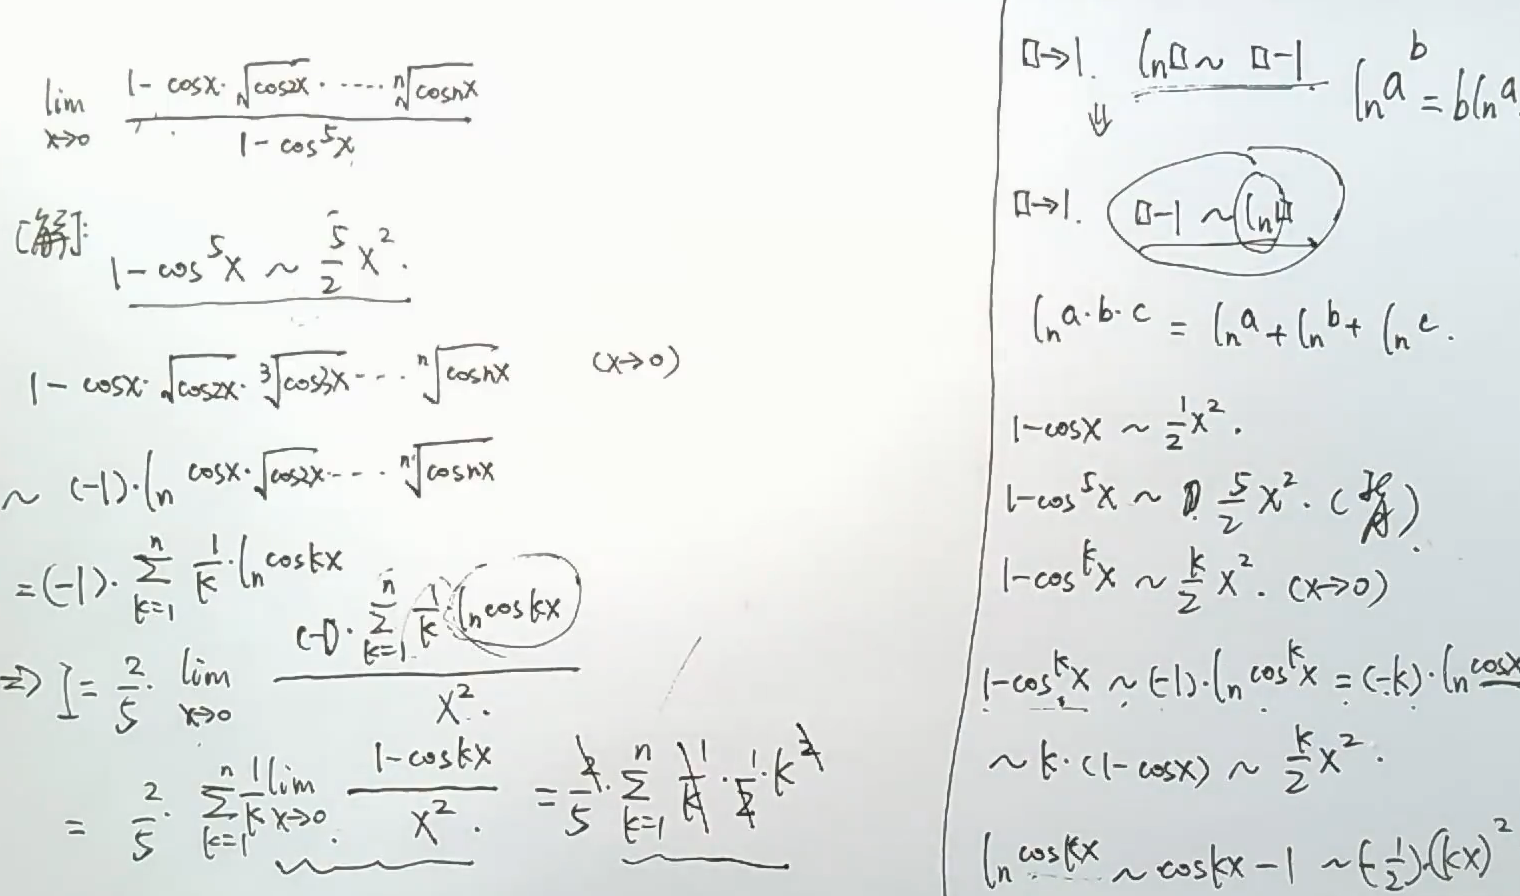 lim x→0 (1 - cosx·√cos2x·····ⁿ√cosnx) / (1 - cos⁵x)
[解]:
1 - cos⁵x ~ 5/2 x².
1 - cosx·√cos2x·³√cos3x···ⁿ√cosnx (x→0)
~ (-1)·ln cosx·√cos2x···ⁿ√cosnx
= (-1)·∑_{k=1}^{n} 1/k·ln coskx
=> I = 2/5·lim x→0 ((-1)·∑_{k=1}^{n} 1/k·ln coskx) / x².
= 2/5·∑_{k=1}^{n} 1/k lim x→0 (1-coskx) / x². = 2/5·∑_{k=1}^{n} 1/k·1/2·k²
□→1. ln□ ~ □-1 ln a^b = b ln a
⇓
□→1. □-1 ~ ln□
ln a·b·c = ln a + ln b + ln c.
1-cosx ~ 1/2 x².
1-cos⁵x ~ 5/2 x².
1-cos^k x ~ k/2 x². (x→0)
1-cos^k x ~ (-1)·ln cos^k x = (-k)·ln cosx
~ k·(1-cosx) ~ k/2 x².
ln coskx ~ coskx - 1 ~ (-1/2)·(kx)²